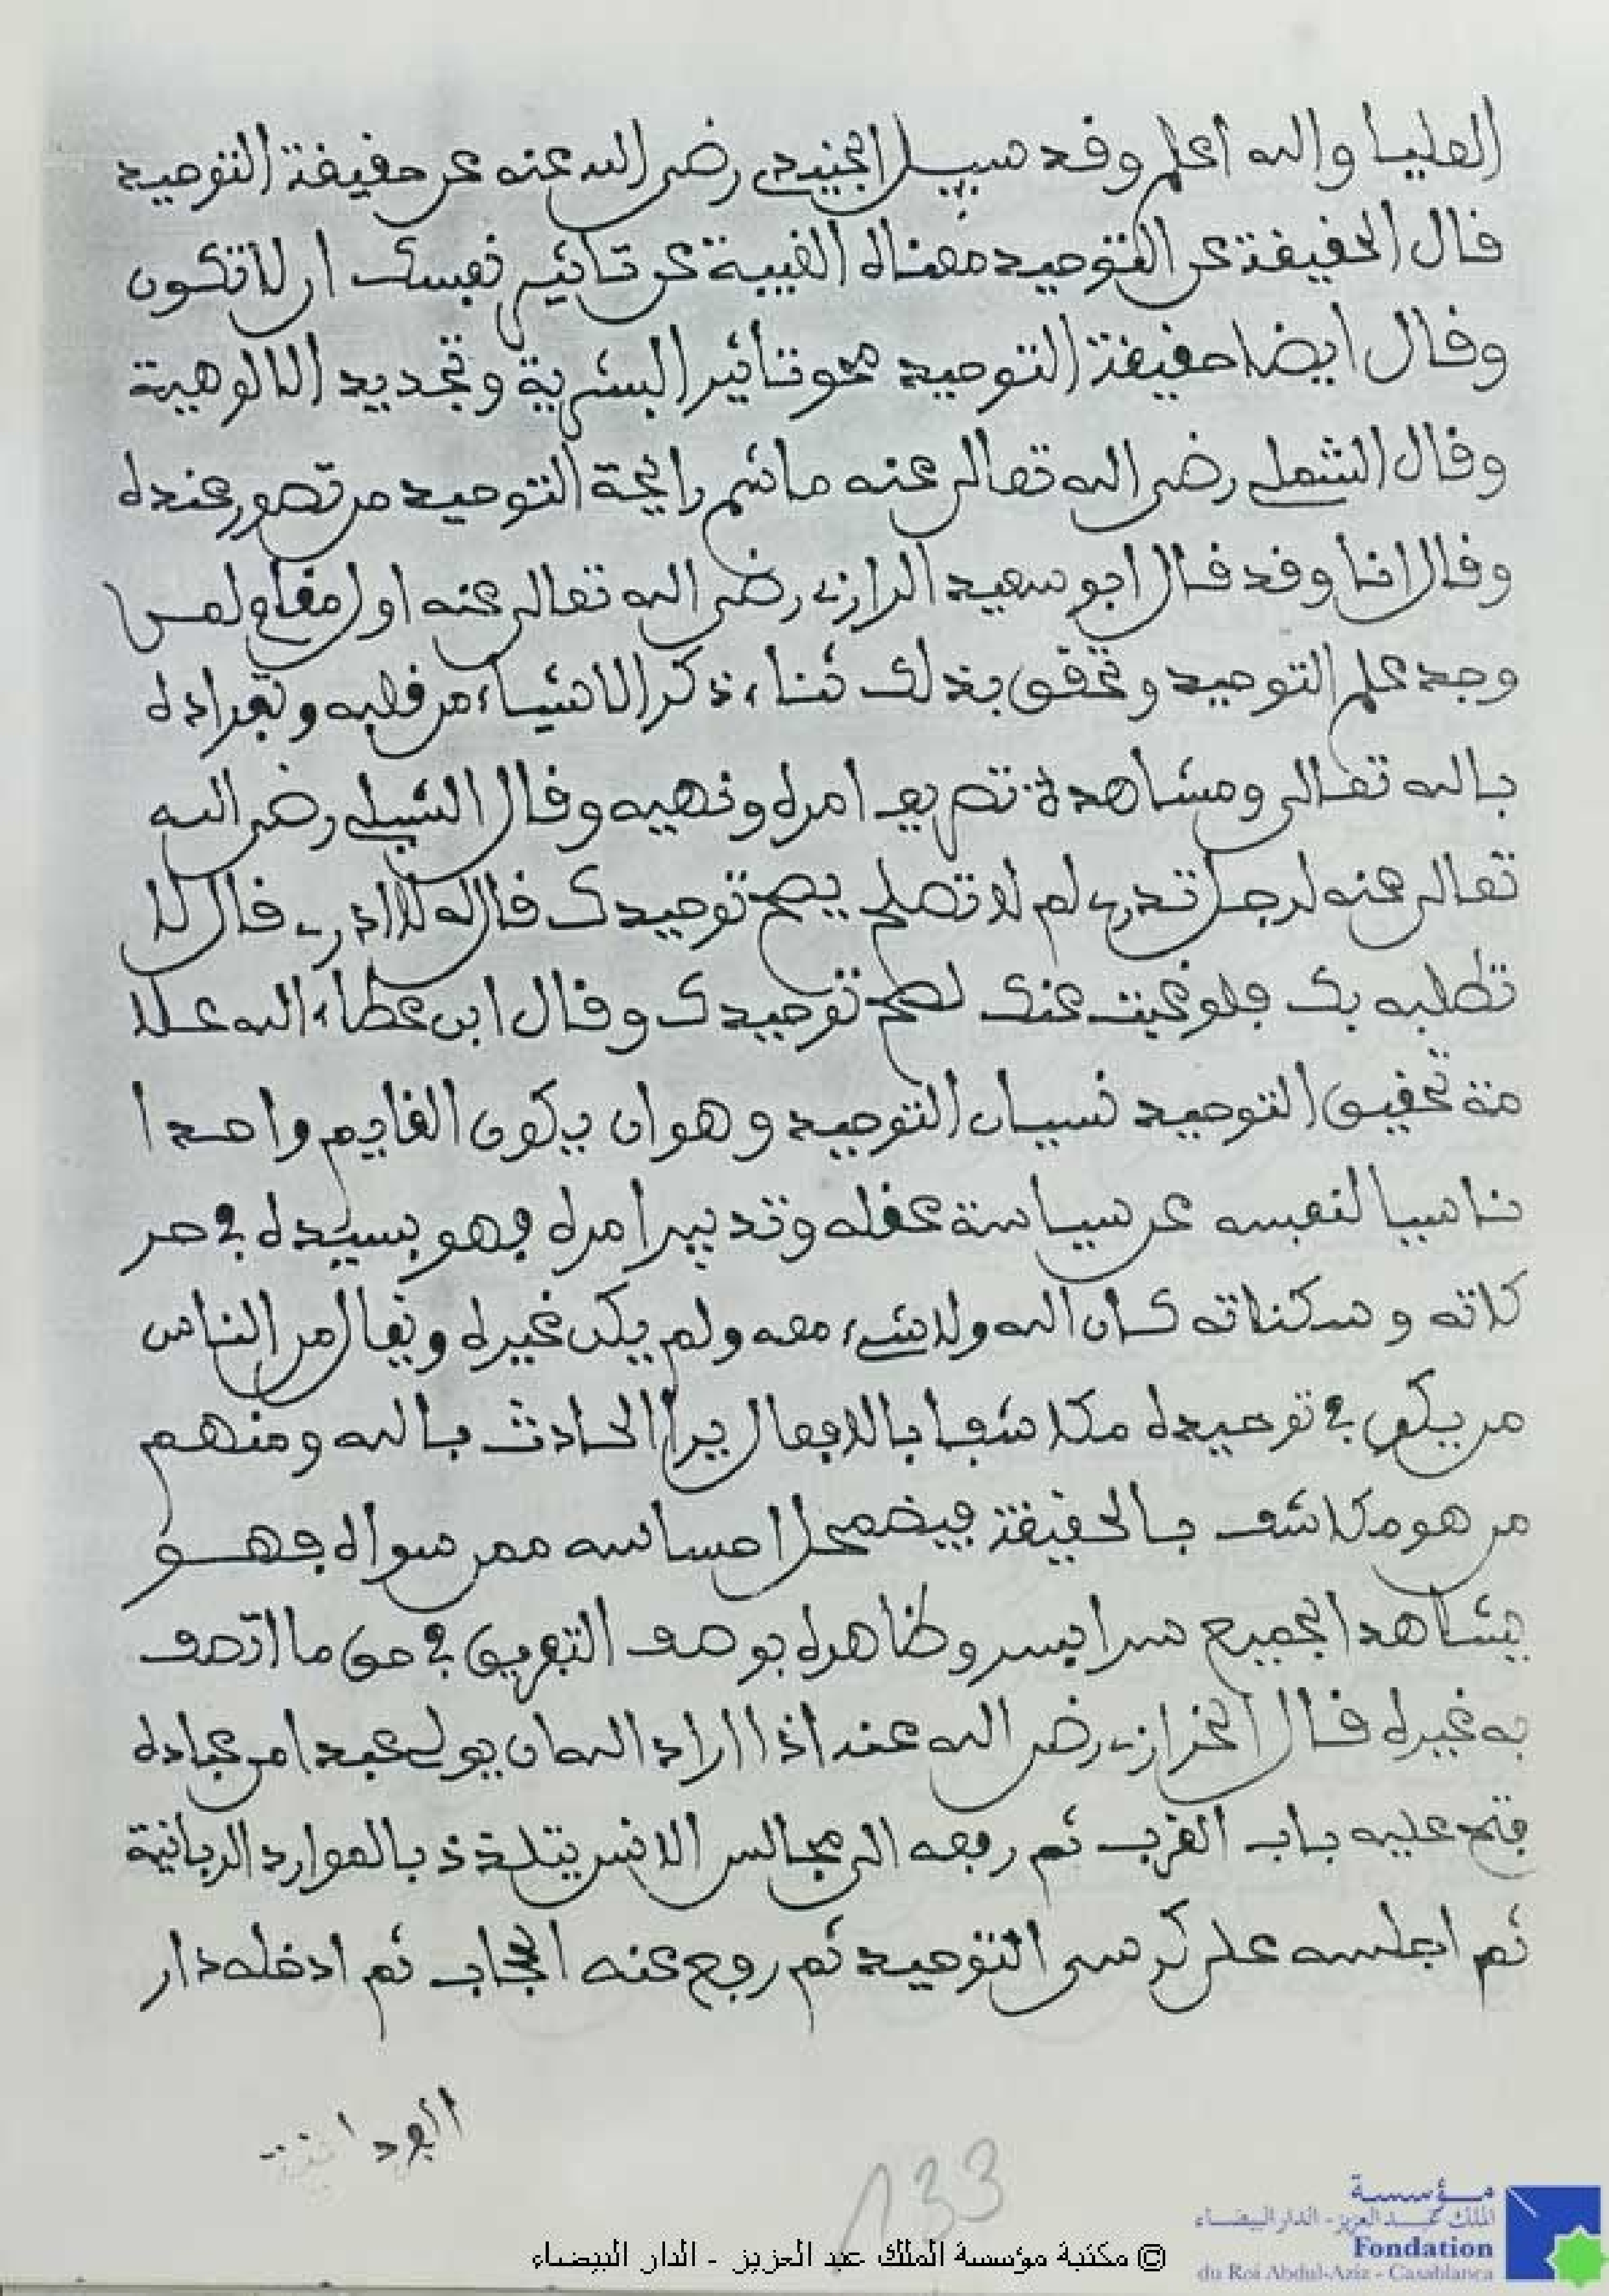 العليا والله اعلم وقد سيل الجنيدي رضي الله عنه عن حقيقة التوحيد
قال الحقيقة عن التوحيد معناه الغيبة عن تاثير نفسك ان لا تكون
وقال ايضا حقيقة التوحيد محو تاثير البشرية وتجديد الالوهية
وقال الشملي رضي الله تعالى عنه ما شم رايحة التوحيد من تصور عنده
وقال انا وقد قال ابو سعيد الرازي رضي الله تعالى عنه اول مقام لمن
وجد علم التوحيد وتحقق بذلك ثناء ذكر الاشياء من قلبه وتفراده
بالله تعالى ومشاهدة تصريف امره ونهيه وقال الشبلي رضي الله
تعالى عنه لرجل تدري لم لا تصلح يصح توحيدك قال له لا ادري قال لا
تطلبه بك فلو غيت عنك لصح توحيدك وقال ابن عطاء الله علا
مة تحقيق التوحيد نسيان التوحيد وهو ان يكون القايم واحدا
ناسيا لنفسه عن سياسة عقله وتدبير امره فهو بسيده في حر
كاته وسكناته كان الله ولا شيء معه ولم يكن غيره ويقال من الناس
من يكون في توحيده مكاشفا بالافعال يرا الحادث بالله ومنهم
من هو مكاشف بالحقيقة فيضمحل احساسه ممن سواه فهو
يشاهد الجميع سرا بسر وظاهره بوصف التفريق في حق ما اتصف
به غيره قال الخرازي رضي الله عند اذا اراد الله ان يولي عبدا من عباده
فتح عليه باب القرب ثم رفعه الى مجالس الانس يتلذذ بالموارد الربانية
ثم اجلسه على كرسي التوحيد ثم رفع عنه الحجاب ثم ادخله دار
الفردانية
133
مؤسسة
الملك عبد العزيز - الدار البيضاء
Fondation
du Roi Abdul-Aziz - Casablanca
© مكتبة مؤسسة الملك عبد العزيز - الدار البيضاء